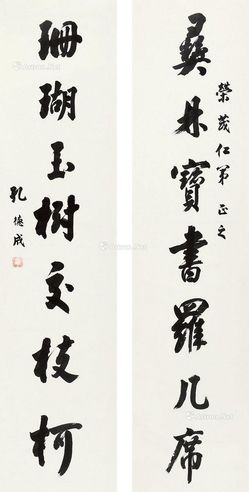 彝林寶書羅几席
榮茂仁弟正之
珊瑚玉樹交枝柯
孔德成